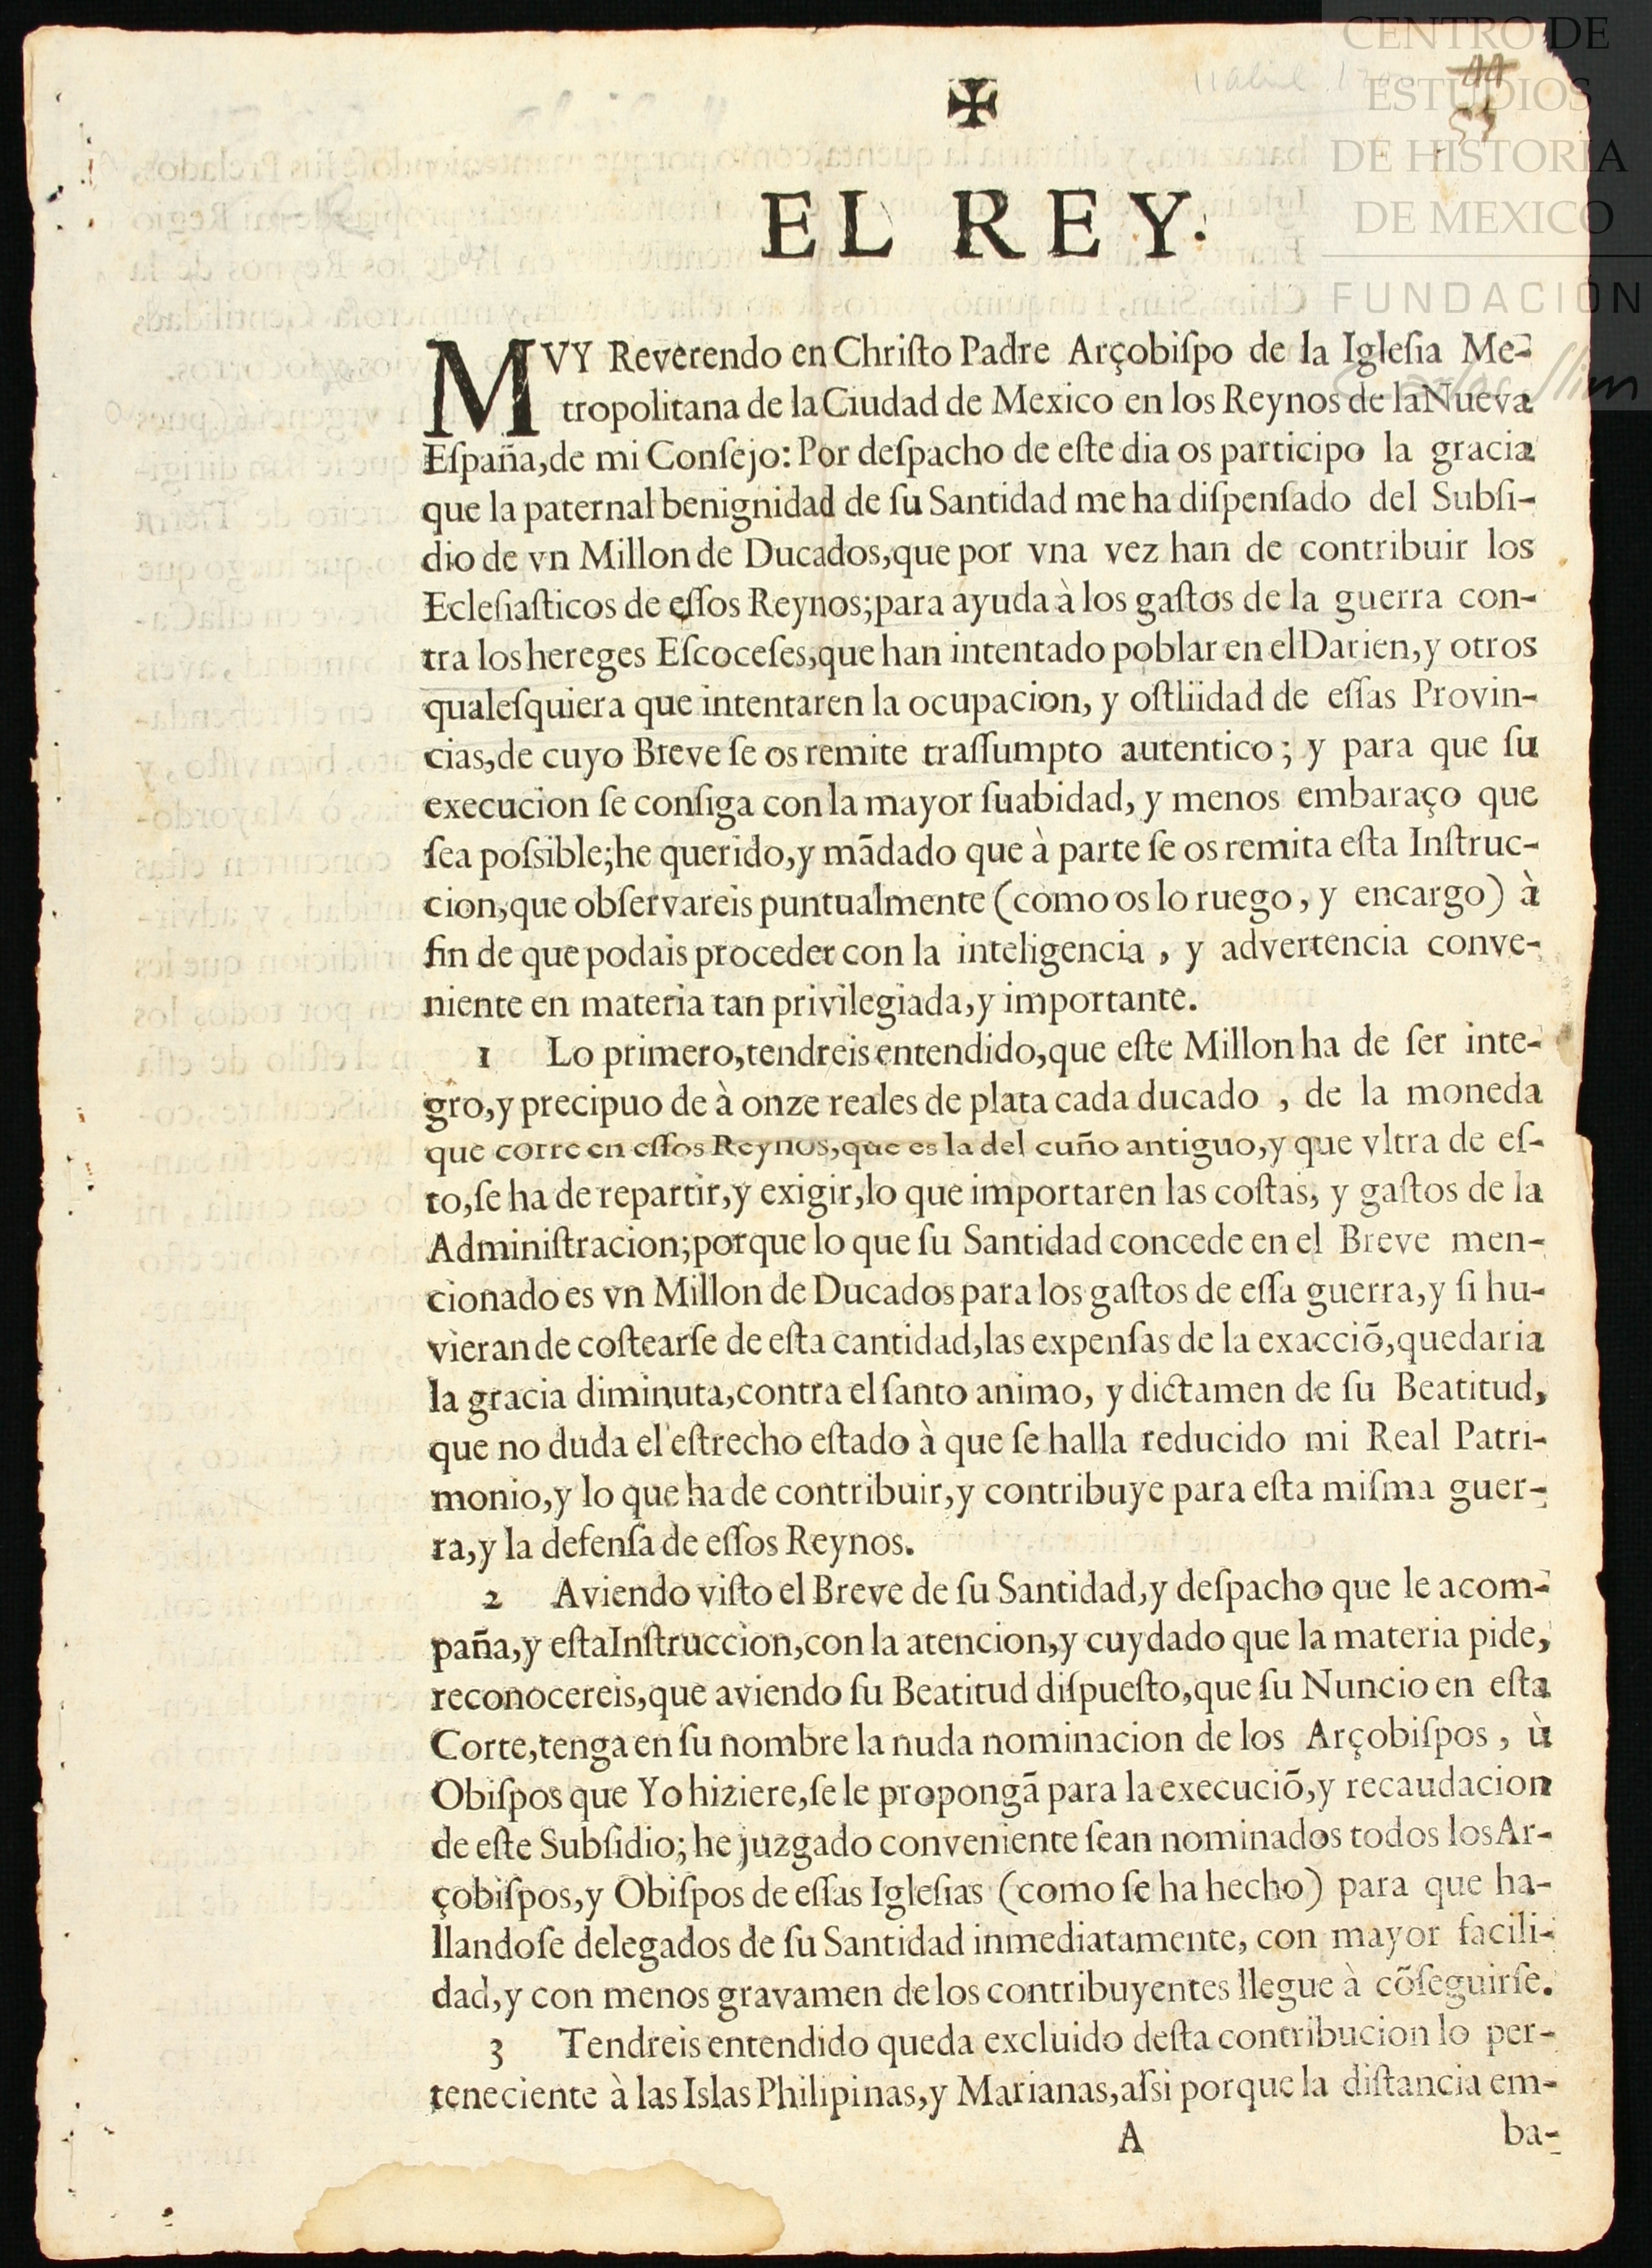 CENTRO DE
ESTUDIOS
DE HISTORIA
DE MEXICO
FUNDACION
Carlos Slim
11 abril
✠
EL REY.
MVY Reverendo en Chriſto Padre Arçobiſpo de la Igleſia Me-
tropolitana de la Ciudad de Mexico en los Reynos de la Nueva
Eſpaña, de mi Conſejo: Por deſpacho de eſte dia os participo la gracia
que la paternal benignidad de ſu Santidad me ha diſpenſado del Subſi-
dio de vn Millon de Ducados, que por vna vez han de contribuir los
Ecleſiaſticos de eſſos Reynos; para ayuda à los gaſtos de la guerra con-
tra los hereges Eſcoceſes, que han intentado poblar en el Darien, y otros
qualeſquiera que intentaren la ocupacion, y oſtliidad de eſſas Provin-
cias, de cuyo Breve ſe os remite traſſumpto autentico; y para que ſu
execucion ſe conſiga con la mayor ſuabidad, y menos embaraço que
ſea poſsible; he querido, y mãdado que à parte ſe os remita eſta Inſtruc-
cion, que obſervareis puntualmente (como os lo ruego, y encargo) à
fin de que podais proceder con la inteligencia, y advertencia conve-
niente en materia tan privilegiada, y importante.
1 Lo primero, tendreis entendido, que eſte Millon ha de ſer inte-
gro, y precipuo de à onze reales de plata cada ducado, de la moneda
que corre en eſſos Reynos, que es la del cuño antiguo, y que vltra de eſ-
to, ſe ha de repartir, y exigir, lo que importaren las coſtas, y gaſtos de la
Adminiſtracion; porque lo que ſu Santidad concede en el Breve men-
cionado es vn Millon de Ducados para los gaſtos de eſſa guerra, y ſi hu-
vieran de coſtearſe de eſta cantidad, las expenſas de la exacciõ, quedaria
la gracia diminuta, contra el ſanto animo, y dictamen de ſu Beatitud,
que no duda el eſtrecho eſtado à que ſe halla reducido mi Real Patri-
monio, y lo que ha de contribuir, y contribuye para eſta miſma guer-
ra, y la defenſa de eſſos Reynos.
2 Aviendo viſto el Breve de ſu Santidad, y deſpacho que le acom-
paña, y eſta Inſtruccion, con la atencion, y cuydado que la materia pide,
reconocereis, que aviendo ſu Beatitud diſpueſto, que ſu Nuncio en eſta
Corte, tenga en ſu nombre la nuda nominacion de los Arçobiſpos, ù
Obiſpos que Yo hiziere, ſe le propongã para la execuciõ, y recaudacion
de eſte Subſidio; he juzgado conveniente ſean nominados todos los Ar-
çobiſpos, y Obiſpos de eſſas Igleſias (como ſe ha hecho) para que ha-
llandoſe delegados de ſu Santidad inmediatamente, con mayor facili-
dad, y con menos gravamen de los contribuyentes llegue à cõſeguirſe.
3 Tendreis entendido queda excluido deſta contribucion lo per-
teneciente à las Islas Philipinas, y Marianas, aſsi porque la diſtancia em-
A ba-